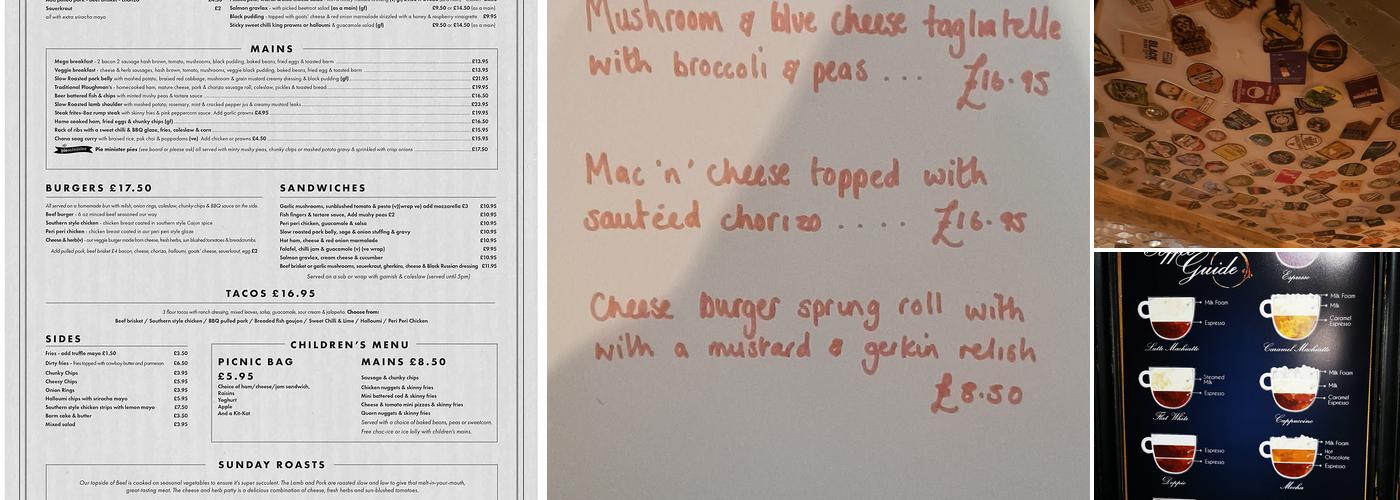 Sauerkraut £2
all with extra sriracha mayo
Salmon gravlax - with picked beetroot salad (as main) (gf) £9.50 or £14.50 (as a main)
Black pudding - topped with goats' cheese & red onion marmalade drizzled with a honey & raspberry vinaigrette £9.95
Sticky sweet chilli king prawns or halloumi & guacamole salad (gf) £9.50 or £14.50 (as main)
MAINS
Mega breakfast - 2 bacon 2 sausage hash brown, tomato, mushrooms, black pudding, baked beans, fried egg & toasted barm £13.95
Veggie breakfast - cheese & herb sausages, hash brown, tomato, mushrooms, veggie black pudding, baked beans, fried egg & toasted barm £13.95
Slow Roasted pork belly with mashed potato, braised red cabbage, mushroom & grain mustard creamy dressing & black pudding (gf) £21.95
Traditional Ploughman's - homecooked ham, mature cheese, pork & chorizo sausage roll, coleslaw, pickles & toasted bread £19.95
Beer battered fish & chips with minted mushy peas & tartare sauce £16.50
Slow Roasted lamb shoulder with mashed potato, rosemary, mint & cracked pepper jus & creamy mustard leaks £23.95
Steak frites-8oz rump steak with skinny fries & pink peppercorn sauce. Add garlic prawns £4.95 £19.95
Home cooked ham, fried eggs & chunky chips (gf) £16.50
Rack of ribs with a sweet chilli & BBQ glaze, fries, coleslaw & corn £15.95
Chana saag curry with braised rice, pak choi & poppadoms (ve) Add chicken or prawns £4.50 £15.95
pieminister Pie minister pies (see board or please ask) all served with minty mushy peas, chunky chips or mashed potato gravy & sprinkled with crisp onions £17.50
BURGERS £17.50
All served on a homemade bun with relish, onion rings, coleslaw, chunky chips & BBQ sauce on the side.
Beef burger - 6 oz minced beef seasoned our way
Southern style chicken - chicken breast coated in southern style Cajun spice
Peri peri chicken - chicken breast coated in our peri peri style glaze
Cheese & herb(v) - our veggie burger made from cheese, fresh herbs, sun blushed tomatoes & breadcrumbs
Add pulled pork, beef brisket £4 bacon, cheese, chorizo, halloumi, goats' cheese, sauerkraut, egg £2
SANDWICHES
Garlic mushrooms, sunblushed tomato & pesto (v)(wrap ve) add mozzarella £3 £10.95
Fish fingers & tartare sauce, Add mushy peas £2 £10.95
Peri peri chicken, guacamole & salsa £10.95
Slow roasted pork belly, sage & onion stuffing & gravy £10.95
Hot ham, cheese & red onion marmalade £10.95
Falafel, chilli jam & guacamole (v) (ve wrap) £9.95
Salmon gravlax, cream cheese & cucumber £10.95
Beef brisket or garlic mushrooms, sauerkraut, gherkins, cheese & Black Russian dressing £11.95
Served on a sub or wrap with garnish & coleslaw (served until 5pm)
TACOS £16.95
3 flour tacos with ranch dressing, mixed leaves, salsa, guacamole, sour cream & jalapeño. Choose from:
Beef brisket / Southern style chicken / BBQ pulled pork / Breaded fish goujon / Sweet Chilli & Lime / Halloumi / Peri Peri Chicken
SIDES
Fries - add truffle mayo £1.50 £3.50
Dirty fries - fries topped with cowboy butter and parmesan £6.50
Chunky Chips £3.95
Cheesy Chips £5.95
Onion Rings £3.95
Halloumi chips with sriracha mayo £5.95
Southern style chicken strips with lemon mayo £7.50
Barm cake & butter £3.50
Mixed salad £3.95
CHILDREN'S MENU
PICNIC BAG
£5.95
Choice of ham/cheese/jam sandwich,
Raisins
Yoghurt
Apple
And a Kit-Kat
MAINS £8.50
Sausage & chunky chips
Chicken nuggets & skinny fries
Mini battered cod & skinny fries
Cheese & tomato mini pizzas & skinny fries
Quorn nuggets & skinny fries
Served with a choice of baked beans, peas or sweetcorn.
Free choc-ice or ice lolly with children's mains.
SUNDAY ROASTS
Our topside of Beef is cooked on seasonal vegetables to ensure it's super succulent. The Lamb and Pork are roasted slow and low to give that melt-in-your-mouth,
great-tasting meat. The cheese and herb patty is a delicious combination of cheese, fresh herbs and sun-blushed tomatoes.
Mushroom & blue cheese taglиatelle
with broccoli & peas ... £16.95
Mac 'n' cheese topped with
sautéed chorizo .... £16.95
Cheese burger sprung roll with
with a mustard & gerkin relish
£8.50
BLACK
Coffee
Guide
Espresso
Milk Foam
Espresso
Latte Machiatto
Milk Foam
Milk
Caramel
Espresso
Caramel Machiatto
Steamed
Milk
Espresso
Flat White
Milk Foam
Milk
Caramel
Espresso
Cappuccino
Espresso
Espresso
Doppio
Milk Foam
Hot
Chocolate
Espresso
Mocha